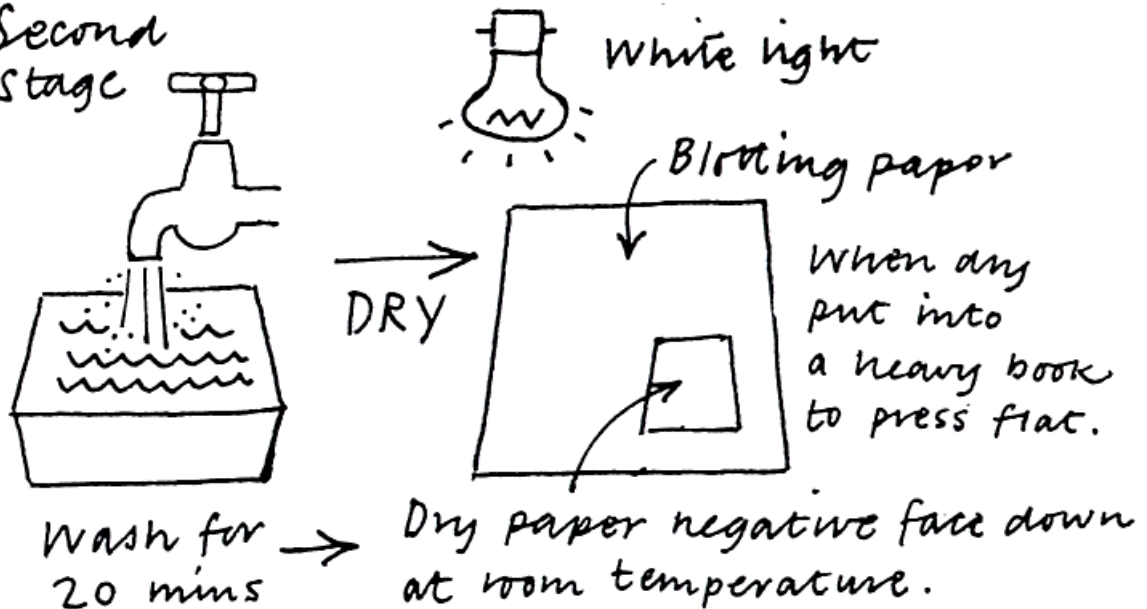 Second
stage
White light
Blotting paper
DRY
When dry
put into
a heavy book
to press flat.
Wash for
20 mins
Dry paper negative face down
at room temperature.